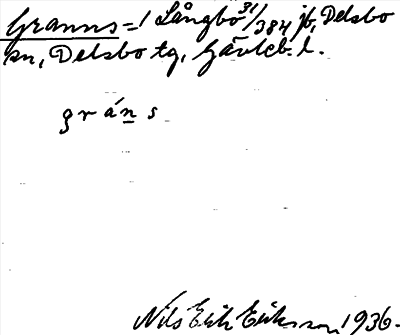 Granns=, Långbo 31/384 jb, Delsbo
sn, Delsbo tg, Gävleb. l.
gráns
Nils Erik Eriksson 1936.